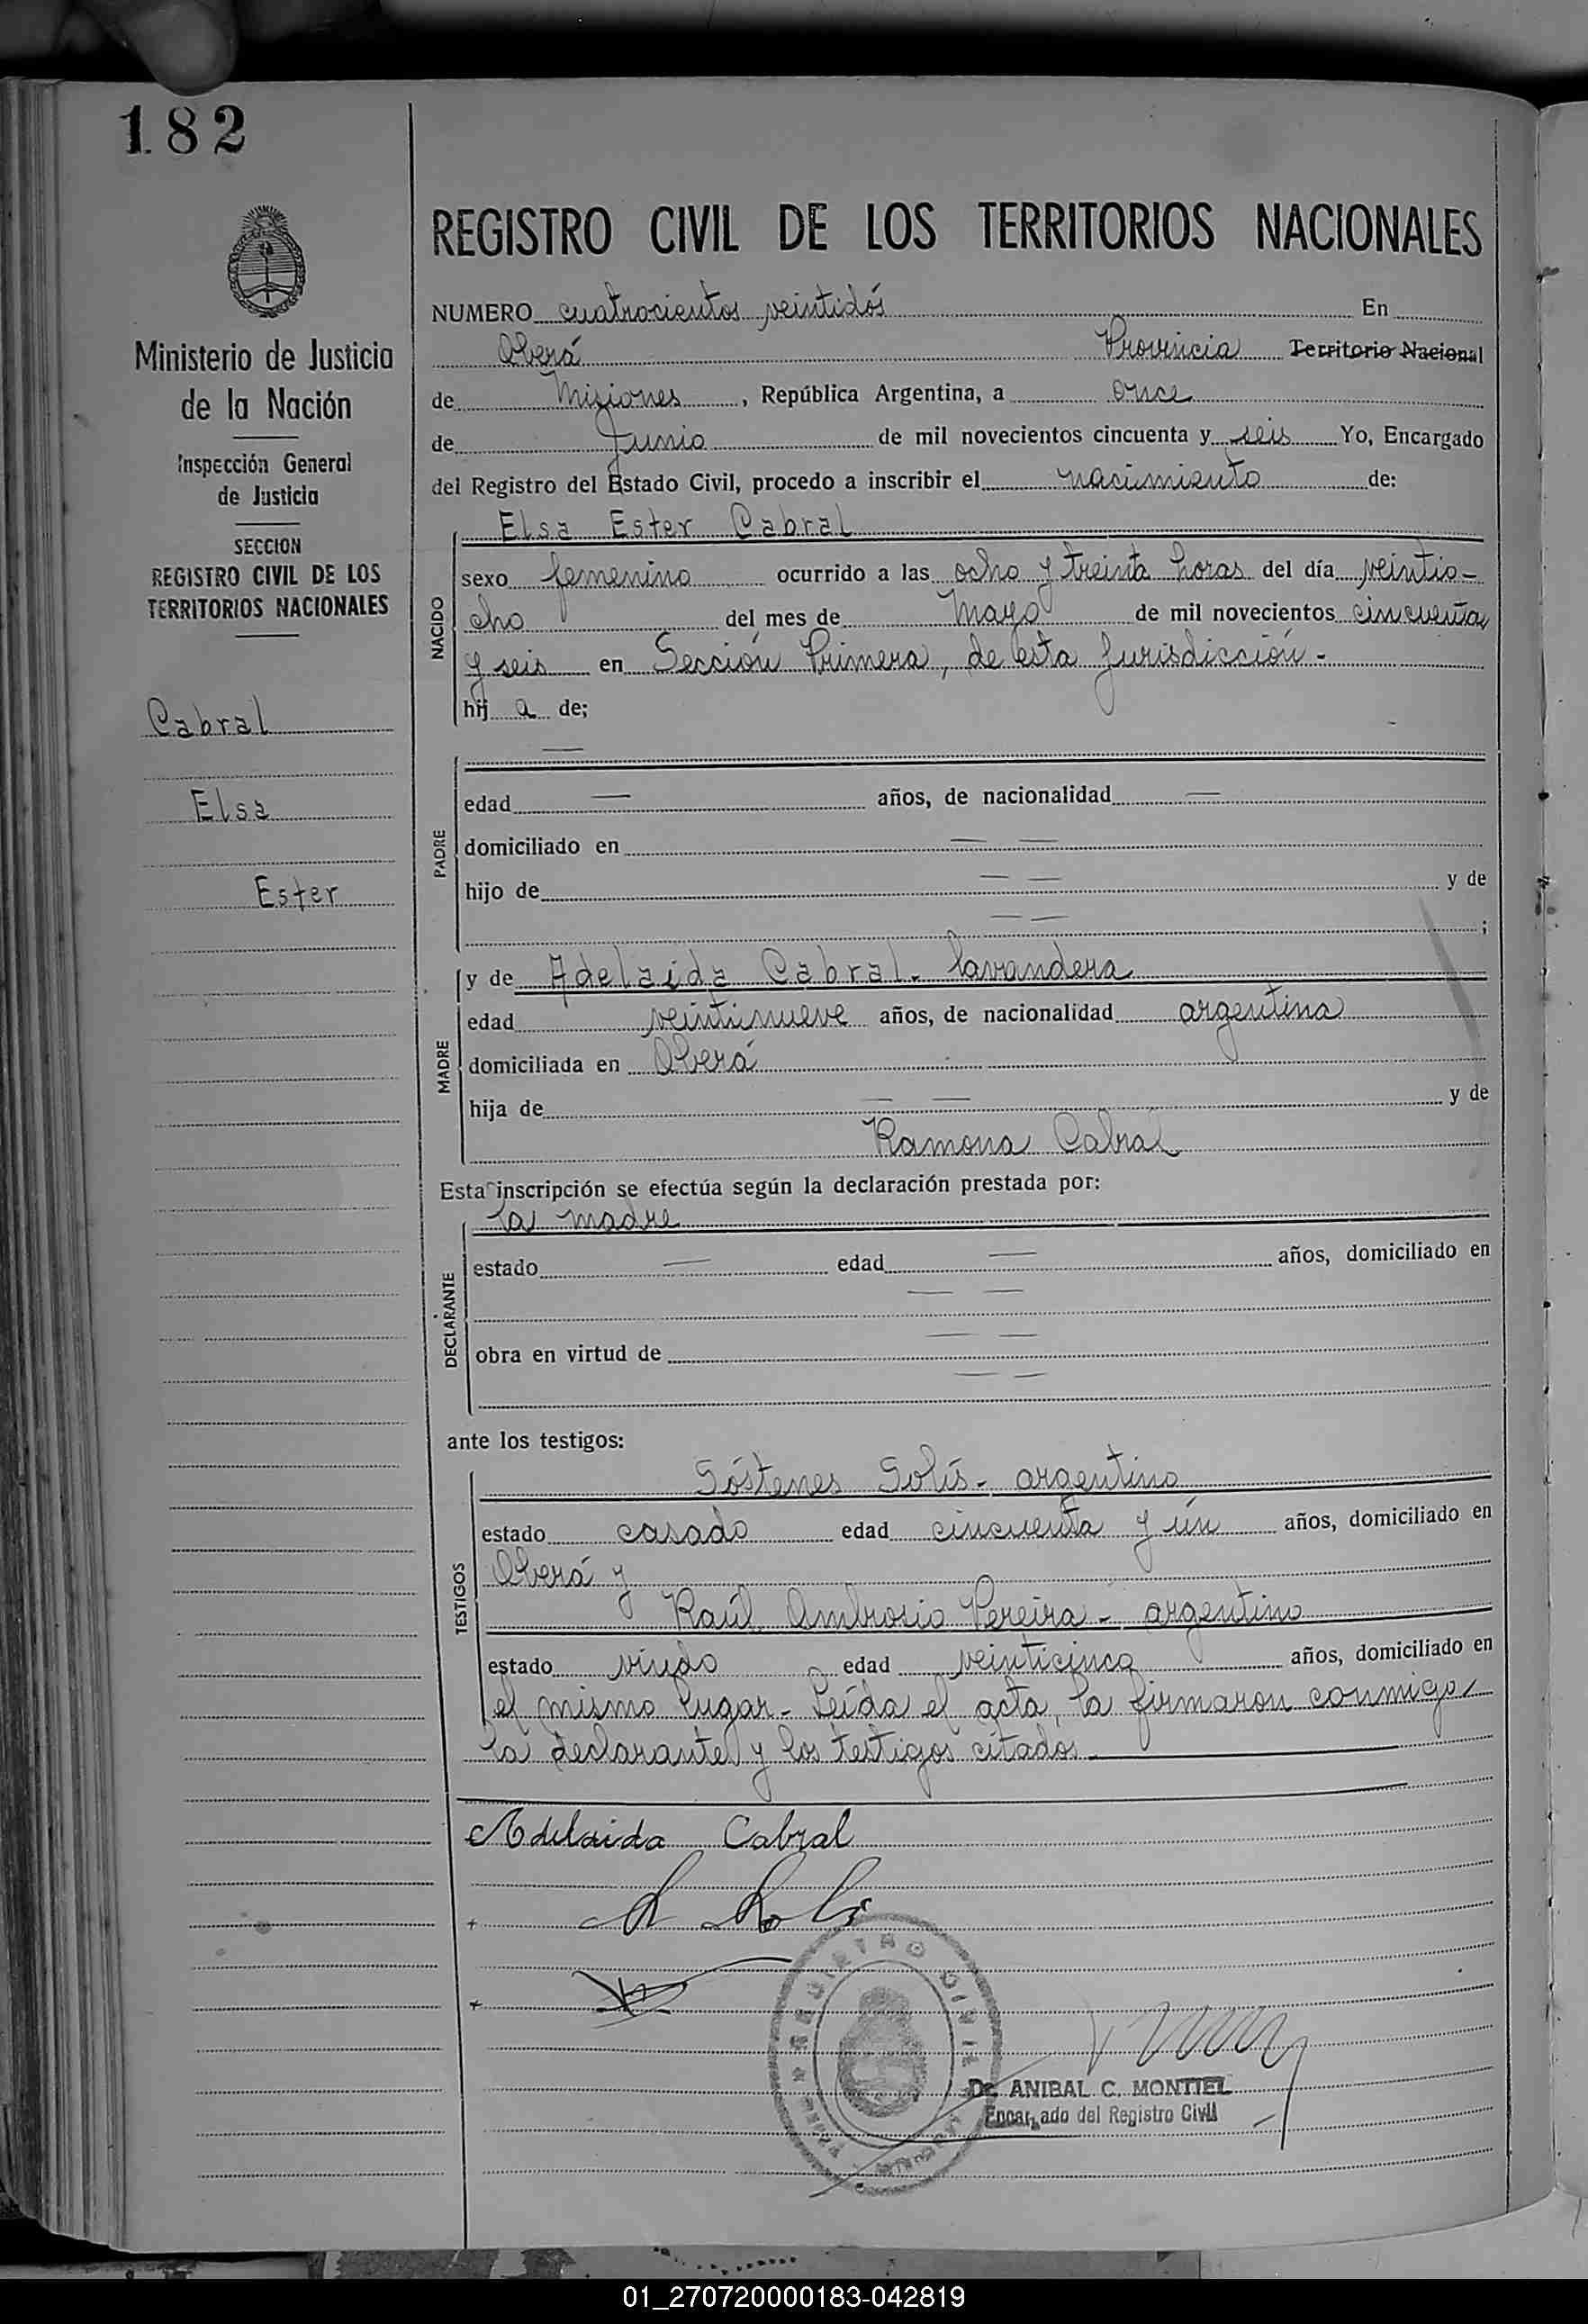 182
REGISTRO CIVIL DE LOS TERRITORIOS NACIONALES
Ministerio de Justicia
de la Nación
Inspección General
de Justicia
SECCION
REGISTRO CIVIL DE LOS
TERRITORIOS NACIONALES
Cabral
Elsa
Ester
NUMERO cuatrocientos veintidós En
Oberá Provincia Territorio Nacional
de Misiones, República Argentina, a once
de Junio de mil novecientos cincuenta y seis Yo, Encargado
del Registro del Estado Civil, procedo a inscribir el nacimiento de:
NACIDO
Elsa Ester Cabral
sexo femenino ocurrido a las ocho y treinta horas del día veintio-
cho del mes de Mayo de mil novecientos cincuenta
y seis en Sección Primera, de esta Jurisdicción.-
hij a de;
PADRE
—
edad — años, de nacionalidad —
domiciliado en — —
hijo de — — y de
— — ;
MADRE
y de Adelaida Cabral.- lavandera
edad veintinueve años, de nacionalidad argentina
domiciliada en Oberá
hija de — — y de
Ramona Cabral
Esta inscripción se efectúa según la declaración prestada por:
DECLARANTE
la madre
estado — edad — años, domiciliado en
— —
obra en virtud de — —
— —
ante los testigos:
TESTIGOS
Sóstenes Solís.- argentino
estado casado edad cincuenta y ún años, domiciliado en
Oberá y
Raúl Ambrosio Pereira.- argentino
estado viudo edad veinticinco años, domiciliado en
el mismo lugar.- Leída el acta, la firmaron conmigo
la declarante y los testigos citados.-
Adelaida Cabral
REGISTRO CIVIL
Dr. ANIBAL C. MONTIEL
Encargado del Registro Civil
01_270720000183-042819